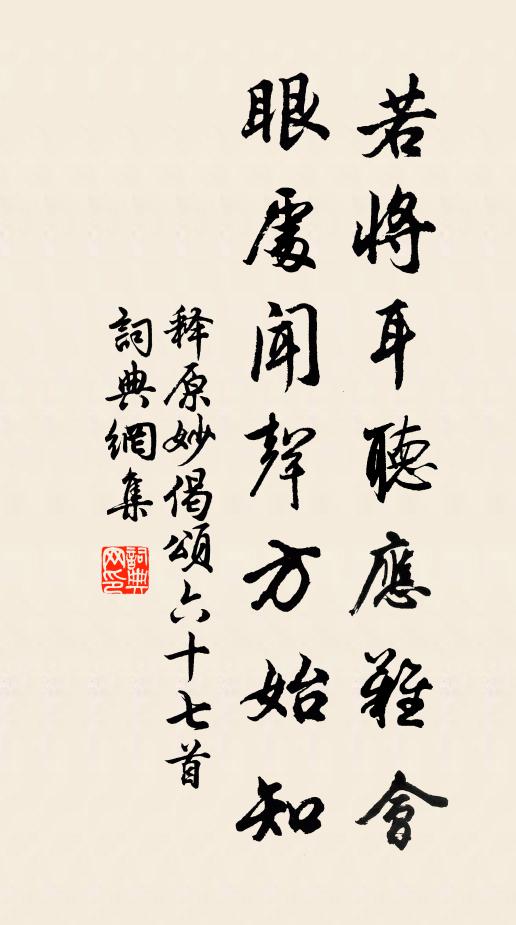 若將耳聽應難會
眼處聞聲方始知
释原妙偈頌六十七首
詞典網集
詞典
网印